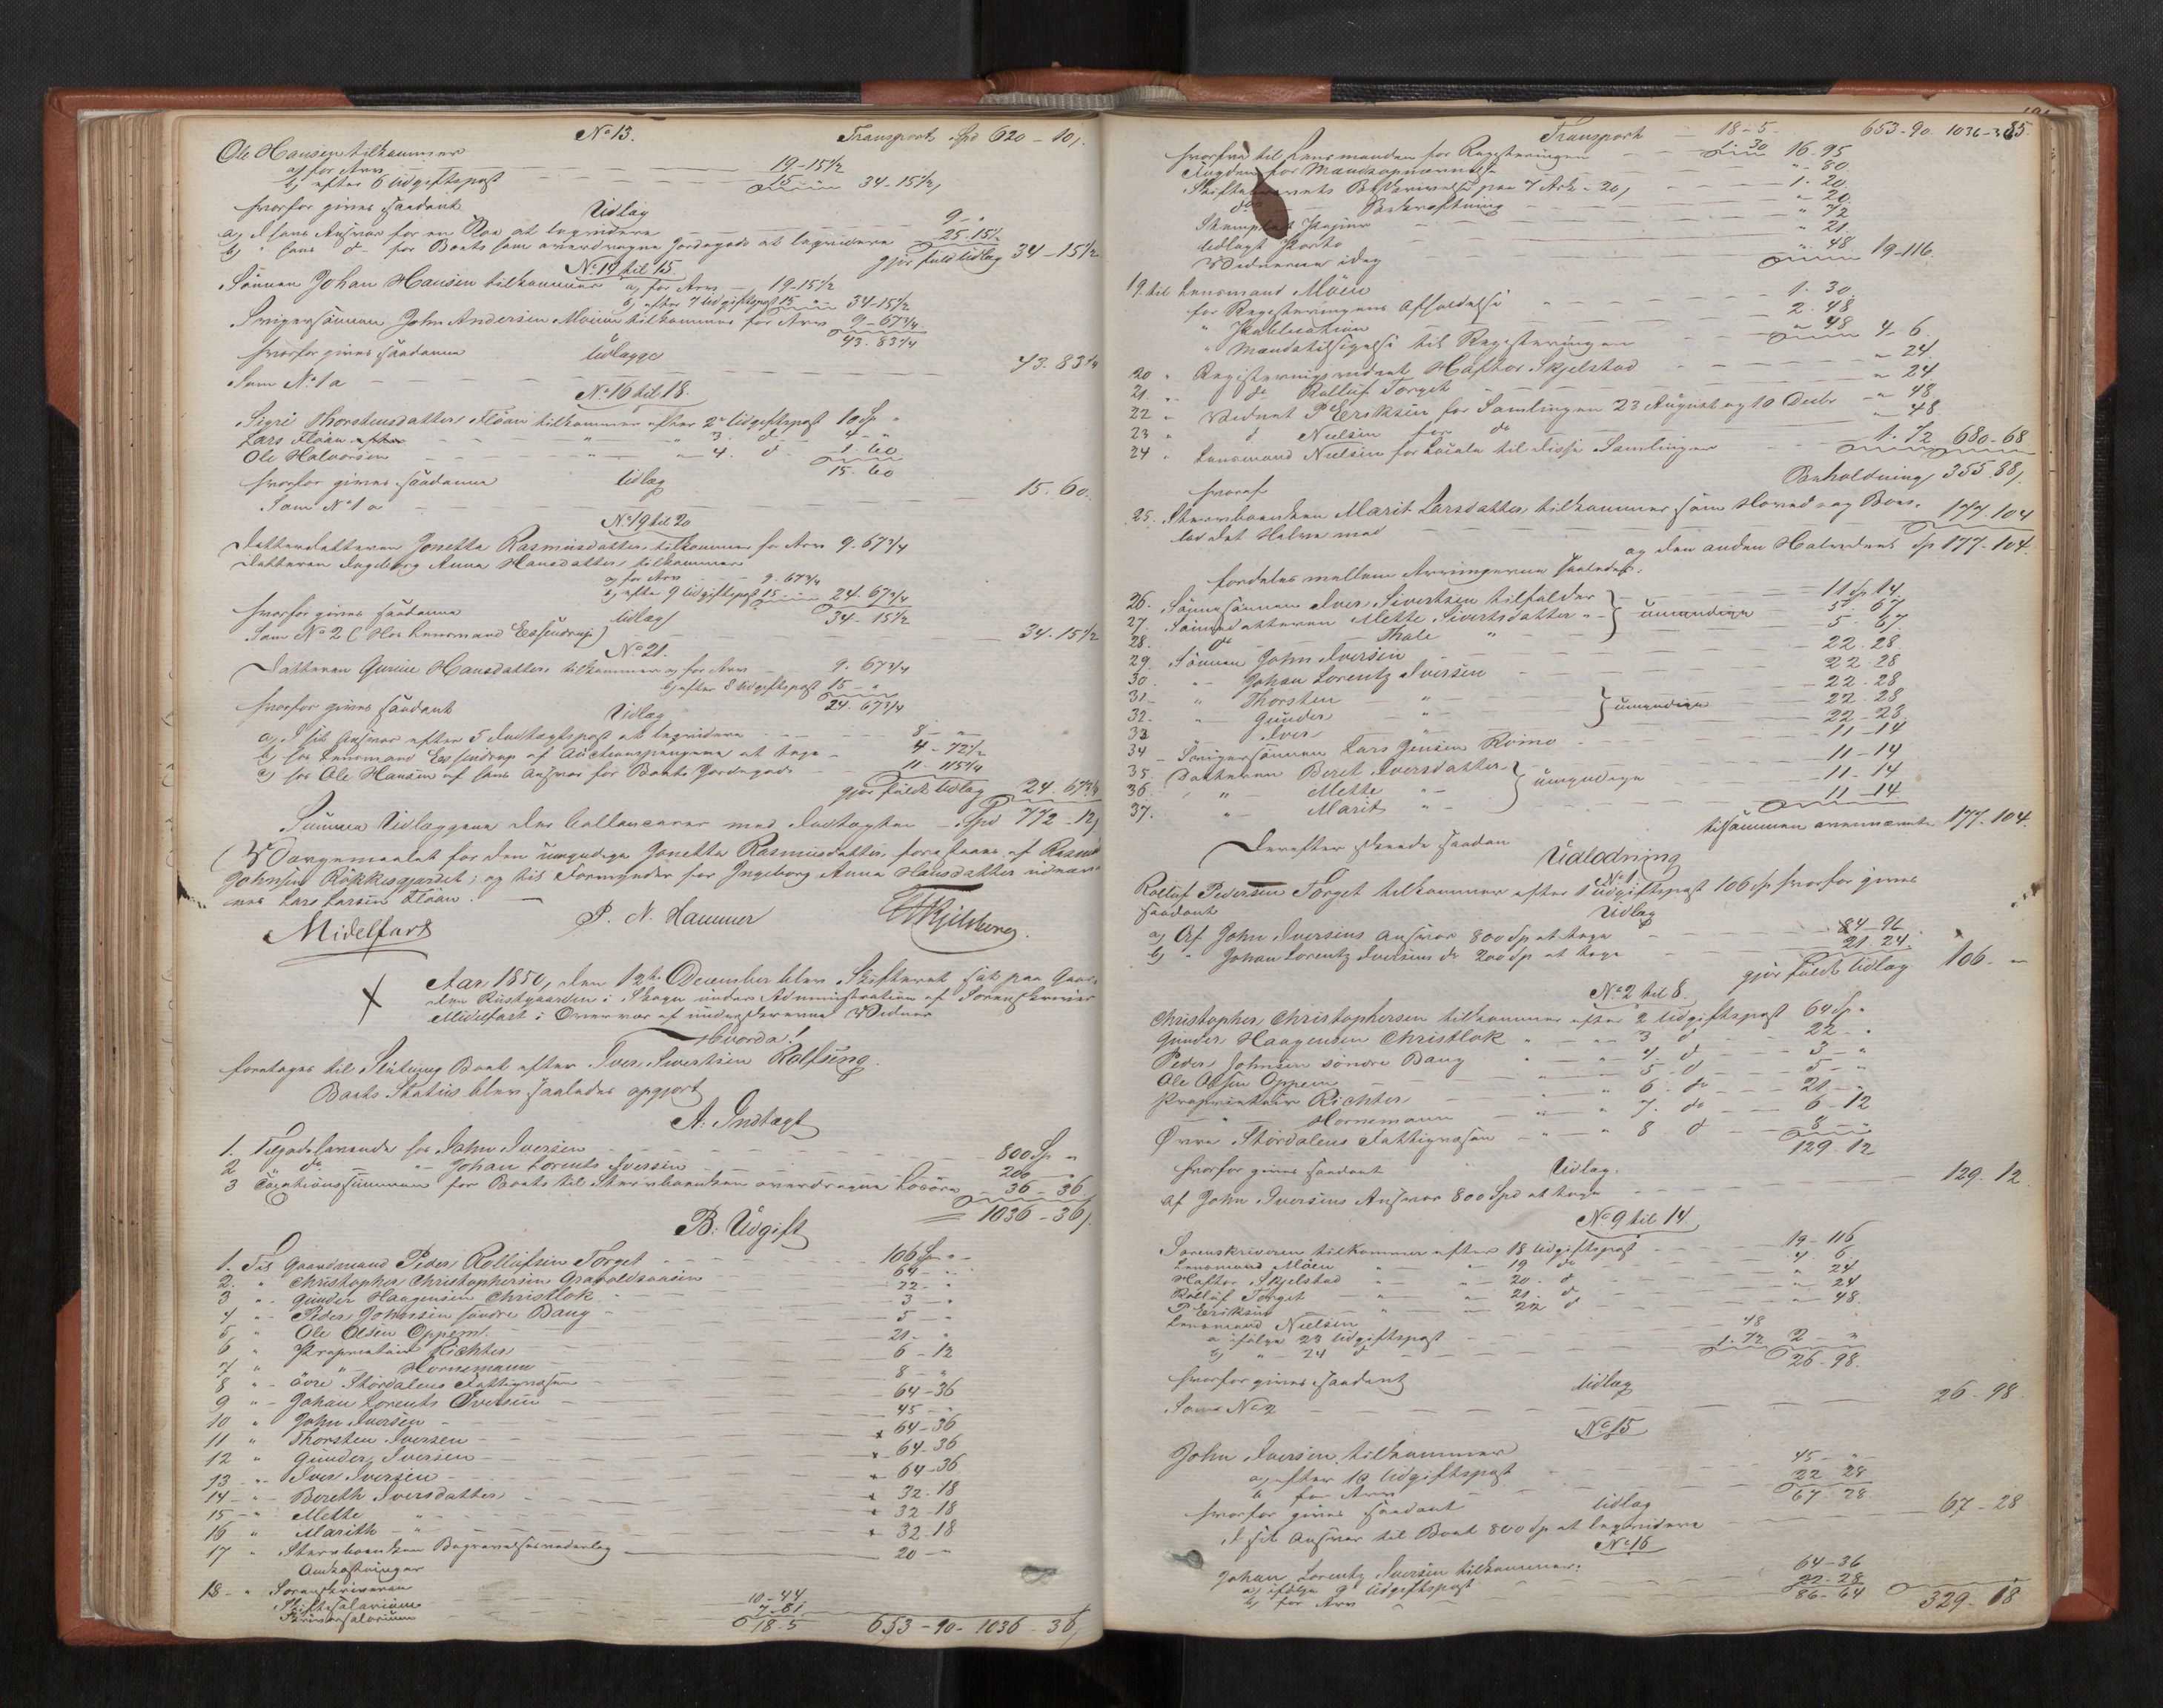 No 13. Transport Spd 620 - 10,
Ole Hansen tilkommer
a) for Arv 19-15½
b) efter 6 Udgiftspost 15 - - 34-15½,
hvorfor gives saadant Udlæg
a, I hans Ansvar for en Koe at liqvidere 9 - -
b) " hans do for Boets ham overdragne Jordegods at liqvidere 25.15½
gjør fuldt Udlæg 34-15½
No 14 til 15.
Sønnen Johan Hansen tilkommer a, for Arv 19-15½
b, efter 7 Udgiftspost 15 - - 34-15½
Svigersønnen John Andersen Moium tilkommer for Arv 9-67¾
43.83¼
hvorfor gives saadanne Udlægge
Som No 1 a 43.83¼
No 16 til 18.
Sigri Thorstensdatter Flöan tilkommer efter 2n Udgiftspost 10 Sp "
Lars Flöan " 3. do 4 - "
Ole Halvorsen " 4. d 1.60
15.60
hvorfor gives saadanne Udlæg
Som No 1 a 15.60.
No 19 til 20
Datterdatteren Jonetta Rasmusdatter tilkommer for Arv 9.67¾
Datteren Ingeborg Anna Hansdatter tilkommer
a, for Arv 9.67¾
b, efter 9 Udgiftspost 15 - - 24.67¾
34-15½
hvorfor gives saadanne Udlæg
Som No 2 (Hos Lensmand Essendrup) 34.15½
No 21.
Datteren Gurine Hansdatter tilkommer a, for Arv 9.67¾
b, efter 8 Udgiftspost 15 - "
24.67¾
hvorfor gives saadant Udlæg
a, I sit Ansvar efter 5 Indtægtspost at liqvidere 8 - "
b, hos Lensmand Essendrup af Auctionspengene at tage 4-72½
c, hos Ole Hansen af hans Ansvar for Boets Jordegods 11-115¼
gjør fuldt Udlæg 24.67¾
Summa Udlæggene der ballancerer med Indtægten Spd 772-12,
Værgemaalet for den umyndige Jonetta Rasmusdatter forestaaes af Rasmus
Johnsen Rökkesgjardet; og til Formynder for Ingeborg Anna Hansdatter udnæv-
nes Lars Larsen Flöan.
Midelfart P. N. Hammer
Aar 1850, den 12te December blev Skifteret sat paa Gaar-
den Rustgaarden i Skogn under Administration af Sorenskriver
Midelfart i Overvær af undertegnede Vidner
Hvorda!
foretages til Slutning Boet efter Iver Sivertsen Rolfsung.
Boets Status blev saaledes opgjort
A. Indtægt
1. Tilgodehavende hos John Iversen 800 Sp "
2 do " Johan Lorents Iversen 200 "
3 Taxationssummen for Boets til Stervboenken overdragne Løsøre 36-36
1036-36,
B. Udgift
1. Til Gaardmand Peder Rollufsen Torget 106 Sp "
2. " Christopher Christophersen 64 - "
3 " Gunder Haagensen Christlok 22 - "
4 " Peder Johnsen søndre Baug 3 - "
5 " Ole Olsen Oppem 5 - "
6 " Proprietair Richter 21 - "
7 " " Hornemann 6-12
8 " øvre Størdalens Fattigvæsen 8 - "
9 " Johan Lorents Iversen 64-36
10 " John Iversen 45 - "
11 " Thorsten Iversen 64-36
12 " Gunder Iversen 64-36
13 " Iver Iversen 64-36
14 " Bereth Iversdatter 32.18
15 " Mette " 32.18
16 " Marith " 32.18
17 " Stervboenken Begravelsesvederlag 20 - "
Omkostninger
18 " Sorenskriveren
Skiftesalarium 10-44
Skriversalarium 7-81
18-5 653-90- 1036-36,
Transport 18-5- 653-90 1036-36 85.
hvorfra til Lensmanden for Registeringen 1.30 16-95
Fogden for Mandsopnævnelse " 80
Skiftebrevets Beskrivelse paa 7 Ark à 20, 1.20
do Bekræftning " 20.
Stemplet Papir " 72
Udlagt Porto " 21.
Vidnerne idag " 48 19-116.
19. til Lensmand Möen
for Registeringens Afholdelse 1.30.
" Publication 2.48
" Mandstilsigelse til Registeringen " 48 4-6.
20 " Registeringsvidnet Haftor Skjelstad " 24.
21. " do Rolluf Torget " 24
22 " Vidnet P Eriksen for Samlingen 23 August og 10 Decbr " 48
23 " d Nielsen for do " 48
24 " Lensmand Nielsen for Locale til disse Samlinger 1.72 680-68
hvoraf Beholdning 355.88,
25. Stervboenken Marit Larsdatter tilkommer som Hoved og Boes-
lod det Halve med 177.104
og den anden Halvdeel Sp 177-104.
fordeles mellem Arvingerne saaledes:
26. Sønnesønnen Iver Sivertsen tilfalder 11 Sp 14.
27. Sønnedatteren Mette Sivertsdatter " umyndige 5.67
28. do Thale " 5.67.
29. Sønnen John Iversen 22.28
30. " Johan Lorentz Iversen 22.28
31. " Thorsten " 22.28
32. " Gunder " umyndige 22.28
33 " Iver " 22-28
34 " Svigersønnen Lars Jensen Römo 11-14
35. Datteren Beret Iversdatter 11-14
36. " Mette " umyndige 11-14
37. " Marit " 11-14
tilsammen overnævnte 177.104.
Derefter skeede saadan
Udlodning
No 1
Rolluf Pedersen Torget tilkommer efter 1 Udgiftspost 106 Sp hvorfor gives
saadant Udlæg
a, Af John Iversens Ansvar 800 Sp at tage 84-96
b, " Johan Lorentz Iversens do 200 Sp at tage 21.24.
gjør fuldt Udlæg 106. -
No 2 til 8.
Christopher Christophersen tilkommer efter 2 Udgiftspost 64 Sp "
Gunder Haagensen Christlok " 3 d 22 - "
Peder Johnsen søndre Baug " 4. d 3 - "
Ole Olsen Oppem " 5 d 5 - "
Proprietair Richter " 6. do 21 - "
" Hornemann " 7. do 6-12
Øvre Størdalens Fattigvæsen " 8 d 8 - "
129.12
hvorfor gives saadant Udlæg.
Af John Iversens Ansvar 800 Spd at tage 129.12.
No 9 til 14
Sorenskriveren tilkommer efter 18 Udgiftspost 19-116
Lensmand Möen " 19 do 4.6
Haftor Skjelstad " 20. d " 24
Rolluf Torget " 21. d " 24
P Eriksen " 22 d " 48
Lensmand Nielsen
a, ifølge 23 Udgiftspost 48
b, " 24 d 1.72 2 - "
26-98.
hvorfor gives saadant Udlæg
Som No 2 26-98
No 15
John Iversen tilkommer
a, efter 10 Udgiftspost 45 - "
b, for Arv 22 28
67-28
hvorfor gives saadant Udlæg
I sit Ansvar til Boet 800 Sp at liqvidere 67-28
No 16
Johan Lorentz Iversen tilkommer:
a, ifølge 9 Udgiftspost 64-36
b, for Arv 22-28
86-64 329-18